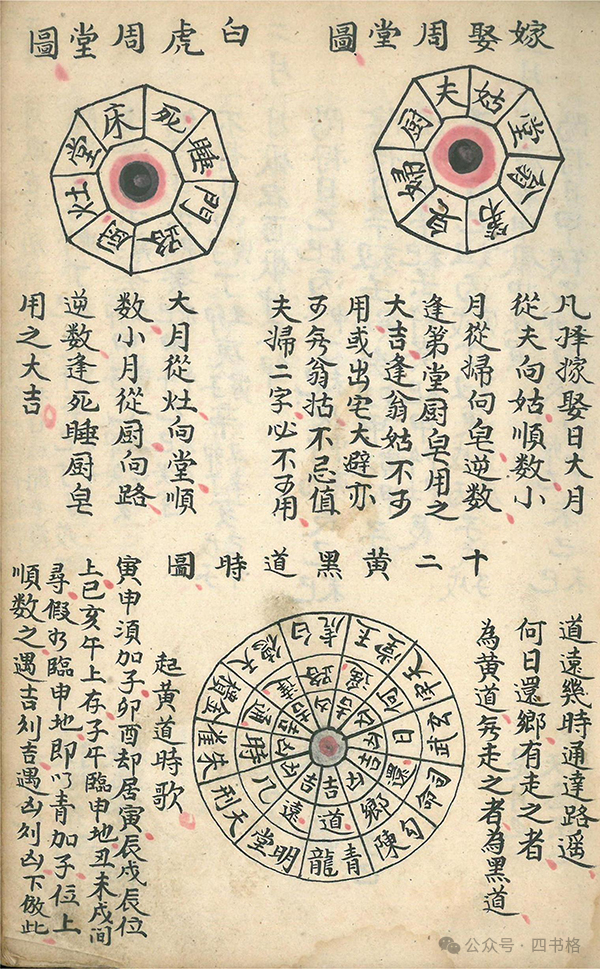 嫁娶周堂圖
夫
姑
堂
翁
第
皂
婦
厨
凡择嫁娶日大月
從夫向姑順数小
月從婦向皂逆数
逢第堂厨皂用之
大吉逢翁姑不可
用或出宅大避亦
可无翁姑不忌值
夫婦二字必不可用
白虎周堂圖
床
死
睡
門
路
厨
灶
堂
大月從灶向堂順
数小月從厨向路
逆数逢死睡厨皂
用之大吉
十二黄黑道時圖
道遠幾時通達路遥
何日還鄉有走之者
為黄道无走之者為黑道
青龍 道 吉
明堂 遠 吉
天刑 几 凶
朱雀 時 凶
金櫃 通 吉
天德 達 吉
白虎 路 凶
玉堂 遥 吉
天牢 何 凶
玄武 日 凶
司命 還 吉
勾陳 鄉 凶
起黄道時歌
寅申須加子卯酉却居寅辰戌辰位
上巳亥午上存子午臨申地丑未戌间
尋假如臨申地即以青加子位上
順数之遇吉则吉遇凶则凶下倣此
公众号·四书格